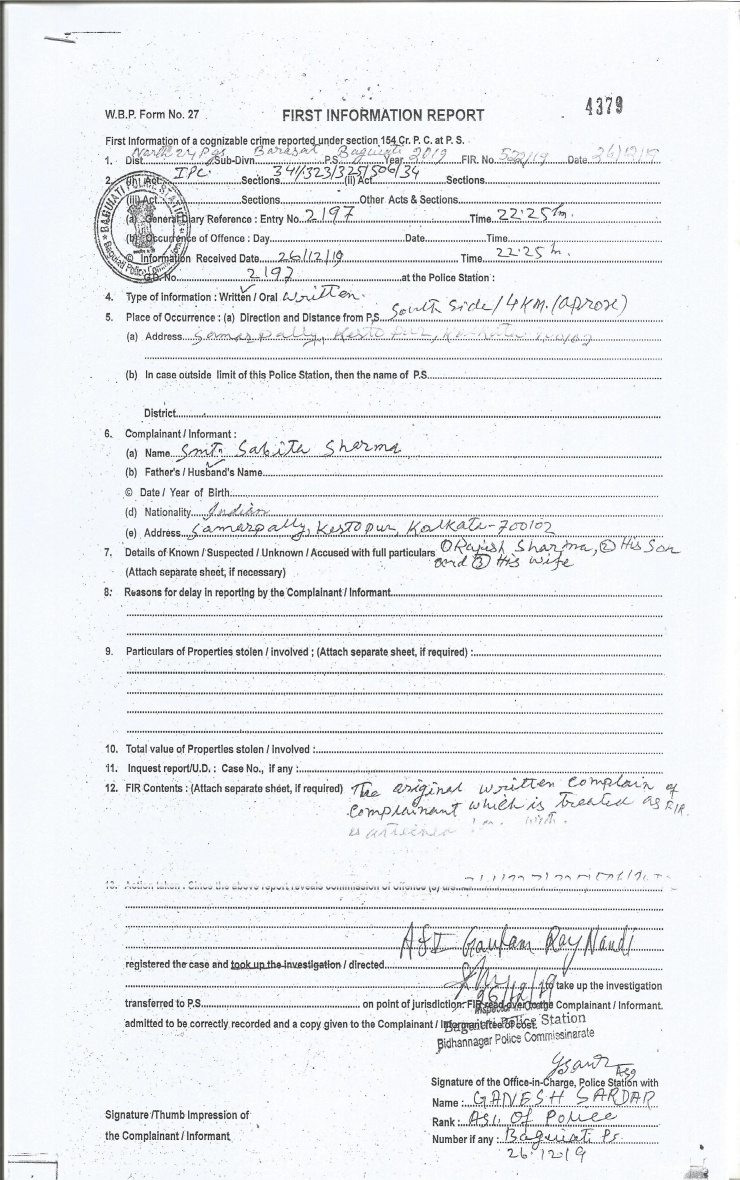 4379
W.B.P. Form No. 27 FIRST INFORMATION REPORT
First Information of a cognizable crime reported under section 154 Cr. P. C. at P. S.
1. Dist. North 24 Pgs Sub-Divn. Barasat P.S. Baguiati Year 2019 FIR. No. 522/19 Date 26/12/19
2. (i) Act IPC Sections 341/323/325/506/34 (ii) Act Sections
(iii) Act Other Acts & Sections
(a) General Diary Reference : Entry No. 2197 Time 22:25 hr.
(b) Occurrence of Offence : Day Date Time
© Information Received Date 26/12/19 Time 22:25 hr.
G.D. No. 2197 at the Police Station :
BAGUIATI POLICE STATION
4. Type of Information : Written / Oral written
5. Place of Occurrence : (a) Direction and Distance from P.S. South Side/4 KM. (aprox)
(a) Address Samarpally, Kestopur, Kolkata 700102
(b) In case outside limit of this Police Station, then the name of P.S.
District
6. Complainant / Informant :
(a) Name Smt. Sabita Sharma
(b) Father's / Husband's Name
© Date / Year of Birth
(d) Nationality Indian
(e) Address Samarpally, Kestopur, Kolkata-700102
7. Details of Known / Suspected / Unknown / Accused with full particulars ① Rajesh Sharma, ② His Son
(Attach separate sheet, if necessary) and ③ His wife
8. Reasons for delay in reporting by the Complainant / Informant
9. Particulars of Properties stolen / involved ; (Attach separate sheet, if required) :
10. Total value of Properties stolen / involved :
11. Inquest report/U.D. : Case No., if any :
12. FIR Contents : (Attach separate sheet, if required) The original written complain of
complainant which is treated as FIR
is attached
13. Action taken : Since the above report reveals commission of offence (s) are
ASI Gautam Ray Nandi
registered the case and took up the investigation / directed
to take up the investigation
26/12/19
transferred to P.S. on point of jurisdiction. FIR read over to the Complainant / Informant.
admitted to be correctly recorded and a copy given to the Complainant / Informant free of cost.
Baguiati Police Station
Bidhannagar Police Commissinarate
Signature of the Office-in-Charge, Police Station with
Name : GANESH SARDAR
Signature /Thumb Impression of Rank : ASI. Of Police
the Complainant / Informant Number if any : Baguiati Ps.
26.12.19